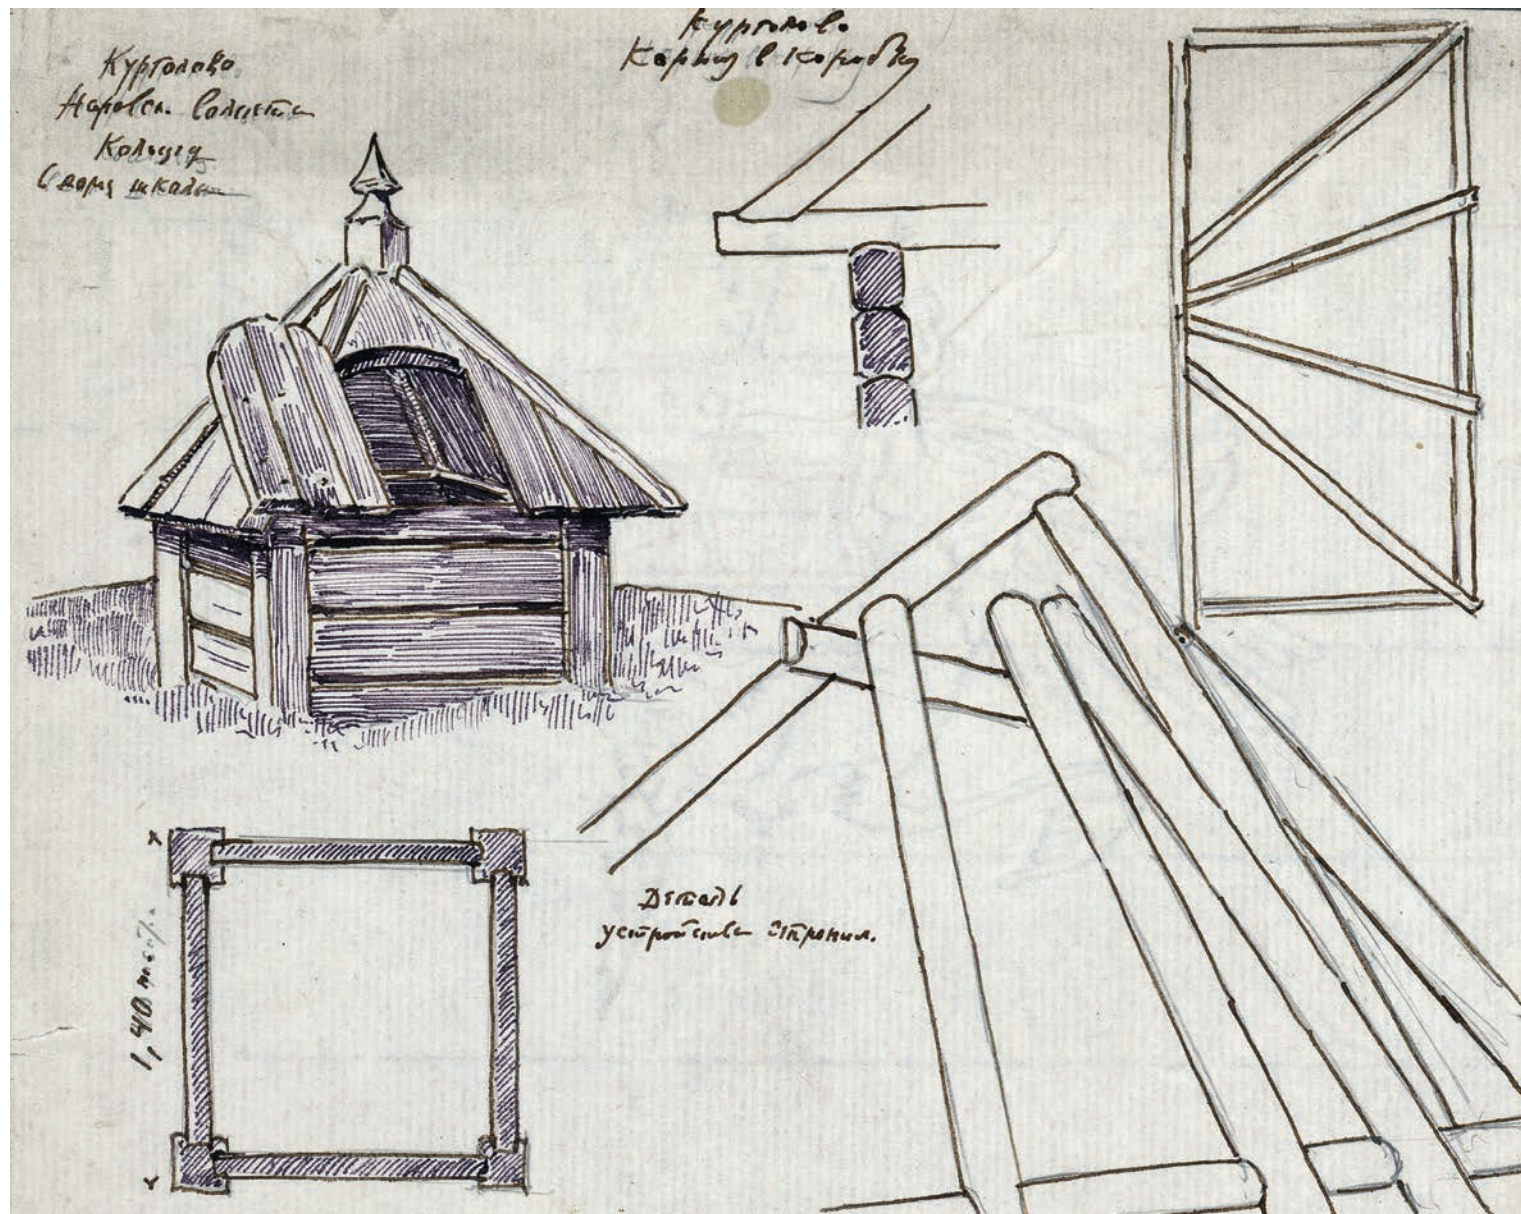 Курголово
Наровск. волости
Колодец
У дома школы
Курголово
Карниз в коробку
1,40 m
Деталь
устройства стропил.